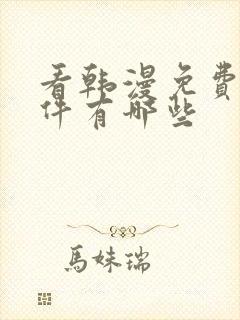 看韩漫免费
件有哪些
馬妹瑞